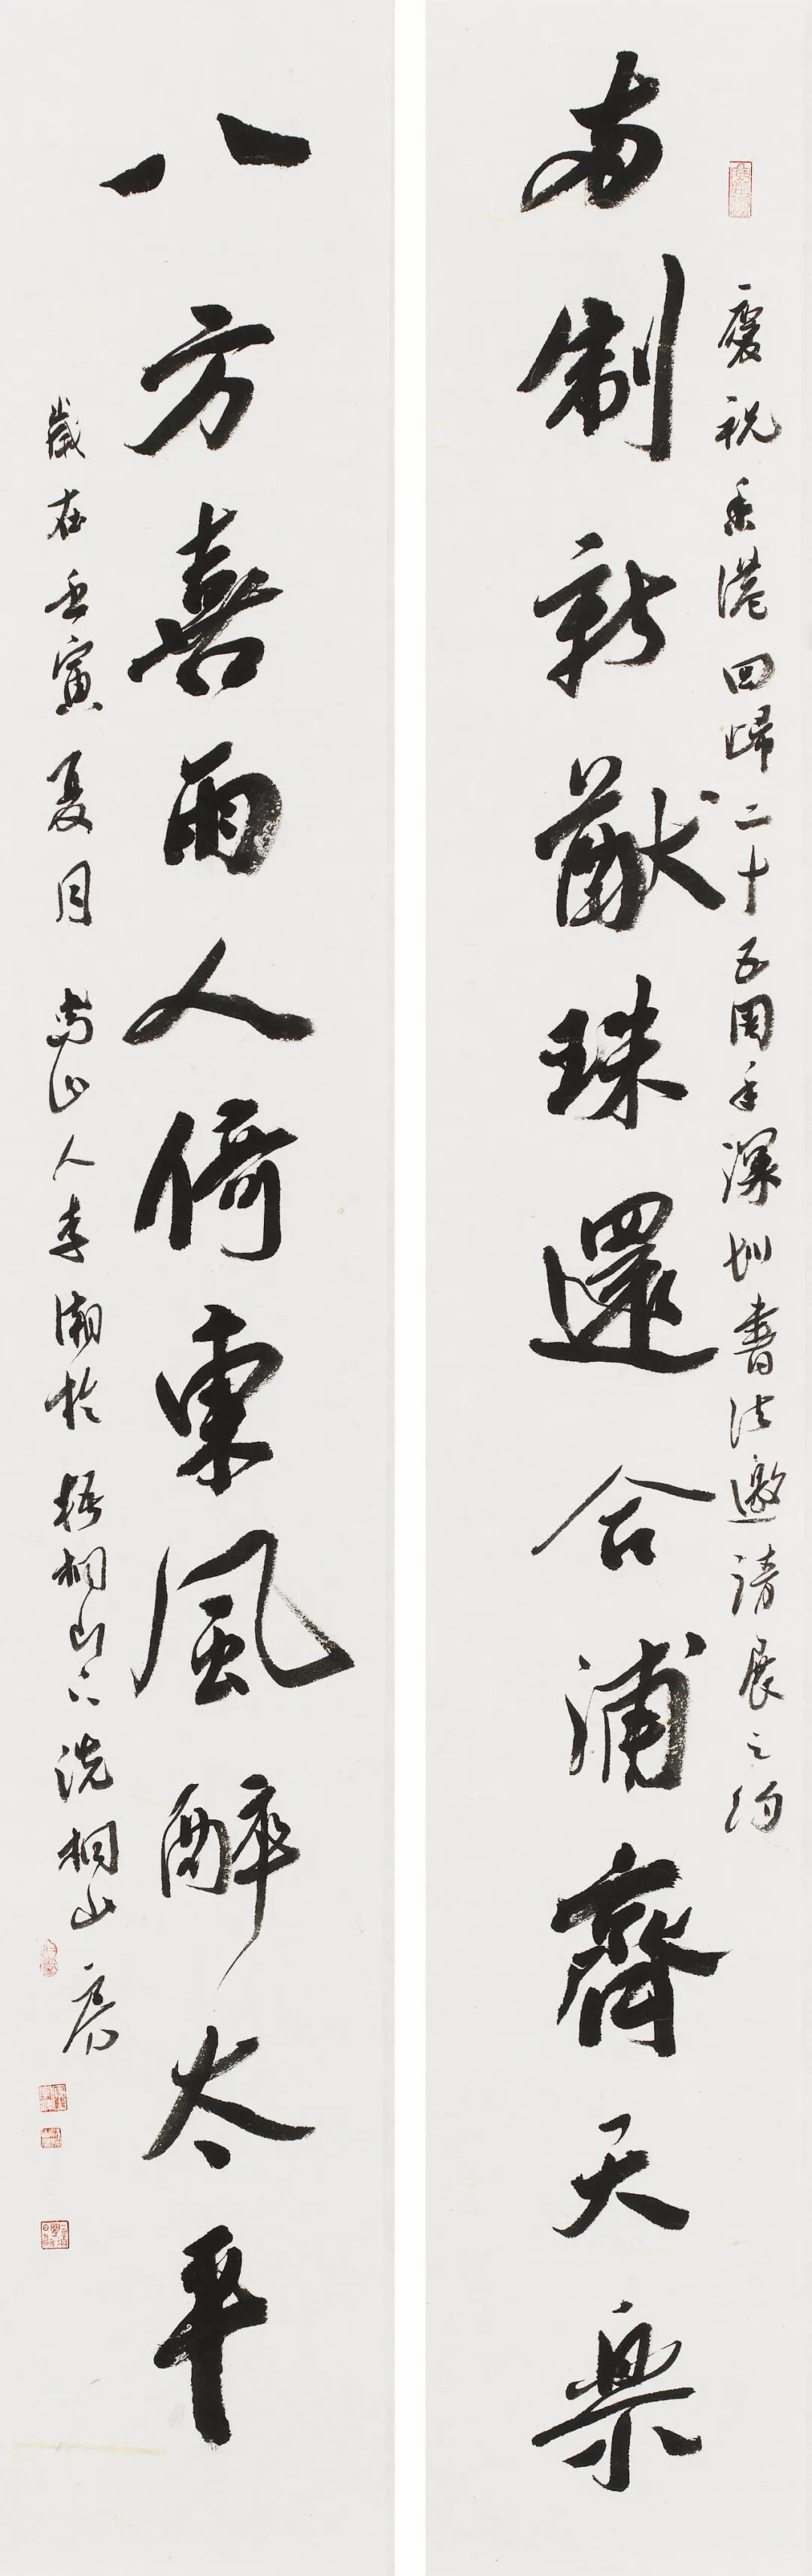 慶祝香港回歸二十五周年深圳書法邀請展之約
兩制新猷珠還合浦齊天樂
八方喜雨人倚東風醉太平
歲在壬寅夏月 山人李潮於梧桐山下洗桐山房